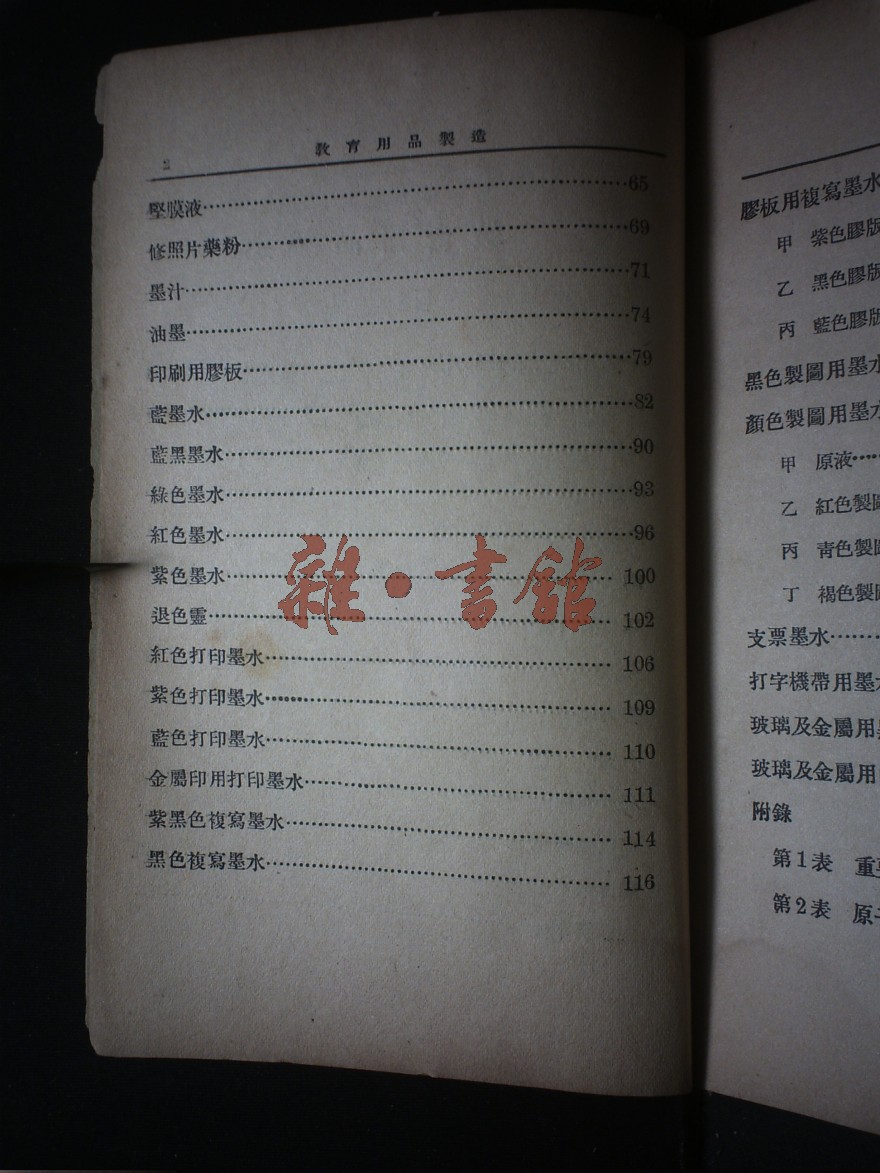 2
教育用品製造
堅膜液…………65
修照片藥粉…………69
墨汁…………71
油墨…………74
印刷用膠板…………79
藍墨水…………82
藍黑墨水…………90
綠色墨水…………93
紅色墨水…………96
紫色墨水…………100
退色靈…………102
紅色打印墨水…………106
紫色打印墨水…………109
藍色打印墨水…………110
金屬印用打印墨水…………111
紫黑色複寫墨水…………114
黑色複寫墨水…………116
雜·書館
膠板用複寫墨水
甲 紫色膠版
乙 黑色膠版
丙 藍色膠版
黑色製圖用墨水
顏色製圖用墨水
甲 原液……
乙 紅色製圖
丙 靑色製圖
丁 褐色製圖
支票墨水……
打字機帶用墨水
玻璃及金屬用
玻璃及金屬用
附錄
第1表 重
第2表 原